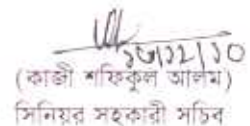 ১৫/১২/১০
(কাজী শফিকুল আলম)
সিনিয়র সহকারী সচিব